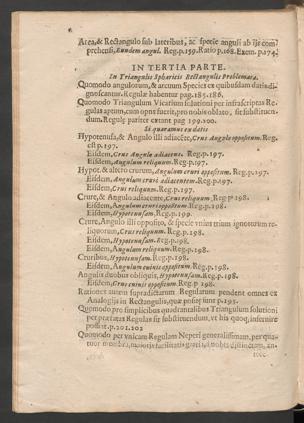 Area, & Rectangulo sub lateribus, ac specie anguli ab ijs com
prehensi, Eundem angul. Reg. p. 159. Ratio p. 168. Exem. p. 174.
IN TERTIA PARTE.
In Triangulis Sphæricis Rectangulis Problemata.
Quomodo angulorum, & arcuum Species ex quibusdam datis di-
gnoscantur. Regulæ habentur pag. 185. 186.
Quomodo Triangulum Vicarium solutioni per infrascriptas Re-
gulas aptum, cum opus fuerit, pro nobis oblato, sit substituen-
dum, Regulę pariter erunt pag 199. 200.
Si quæramus ex datis
Hypotenusa, & Angulo illi adiacēte, Crus Angulo oppositum. Reg.
est p. 197.
Eisdem, Crus Angulo adiacens. Reg. p. 197.
Eisdem, Angulum reliquum. Reg. p. 197.
Hypot. & altero crurum, Angulum cruri oppositum. Reg. p. 197.
Eisdem, Angulum cruri adiacentem. Reg. p. 197.
Eisdem, Crus reliquum. Reg. p. 197.
Crure, & Angulo adiacente, Crus reliquum Reg. p. 198.
Eisdem, Angulum cruri oppositum. Reg. p. 198.
Eisdem, Hypotenusam. Reg. p. 199.
Crure, Angulo illi opposito, & specie vnius trium ignotorum re-
liquorum, Crus reliquum. Reg. p. 198.
Eisdem, Hypotenusam. Reg. p. 198.
Eisdem, Angulum reliquum. Reg. p. 198.
Cruribus, Hypotenusam. Reg. p. 198.
Eisdem, Angulum cuiuis oppositum. Reg. p. 198.
Angulis duobus obliquis, Hypotenusam. Reg. p. 198.
Eisdem, Crus cuiuis oppositum. Reg. p. 198.
Rationes autem supradictarum Regularum pendent omnes ex
Analogijs in Rectangulis, quæ positę sunt p. 195.
Quomodo pro simplicibus quadrantalibus Triangulum solutioni
per prætatas Regulas sit substituendum, vt his quoq; inseruire
possit p. 201. 202
Quomodo per vnicam Regulam Neperi generalissimam, per qua-
tuor membra, maioris facilitatis gratia, à nobis distinctam, an-